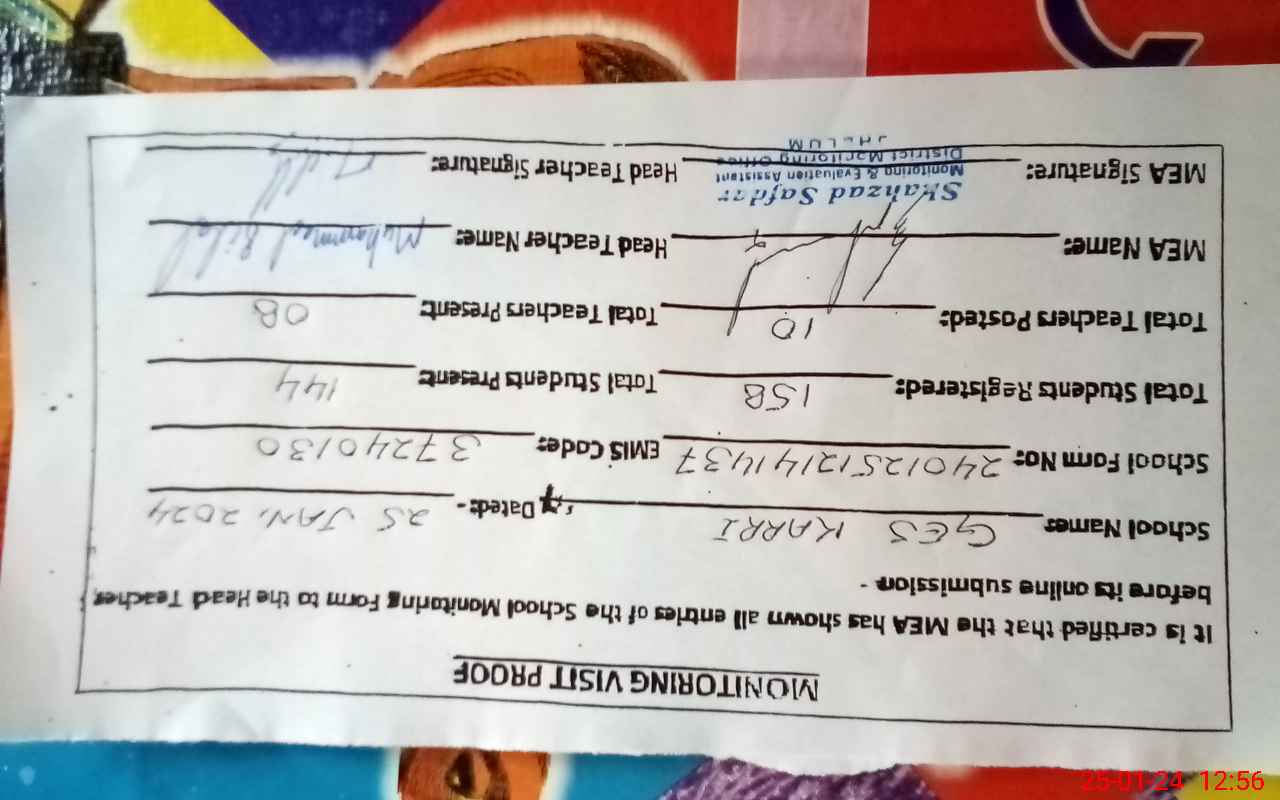 MONITORING VISIT PROOF
It is certified that the MEA has shown all entries of the School Monitoring Form to the Head Teacher,
before its online submission -
School Name: GES KARRI Dated: - 25 JAN, 2024
School Form No: 2401251214437 EMIS Code: 37240130
Total Students Registered: 158 Total Students Present: 144
Total Teachers Posted: 10 Total Teachers Present: 08
MEA Name: Head Teacher Name: Muhammad Bilal
Shahzad Safdar
Monitoring & Evaluation Assistant
MEA Signature: Head Teacher Signature:
District Monitoring Office
JHELUM
25-01-24 12:56